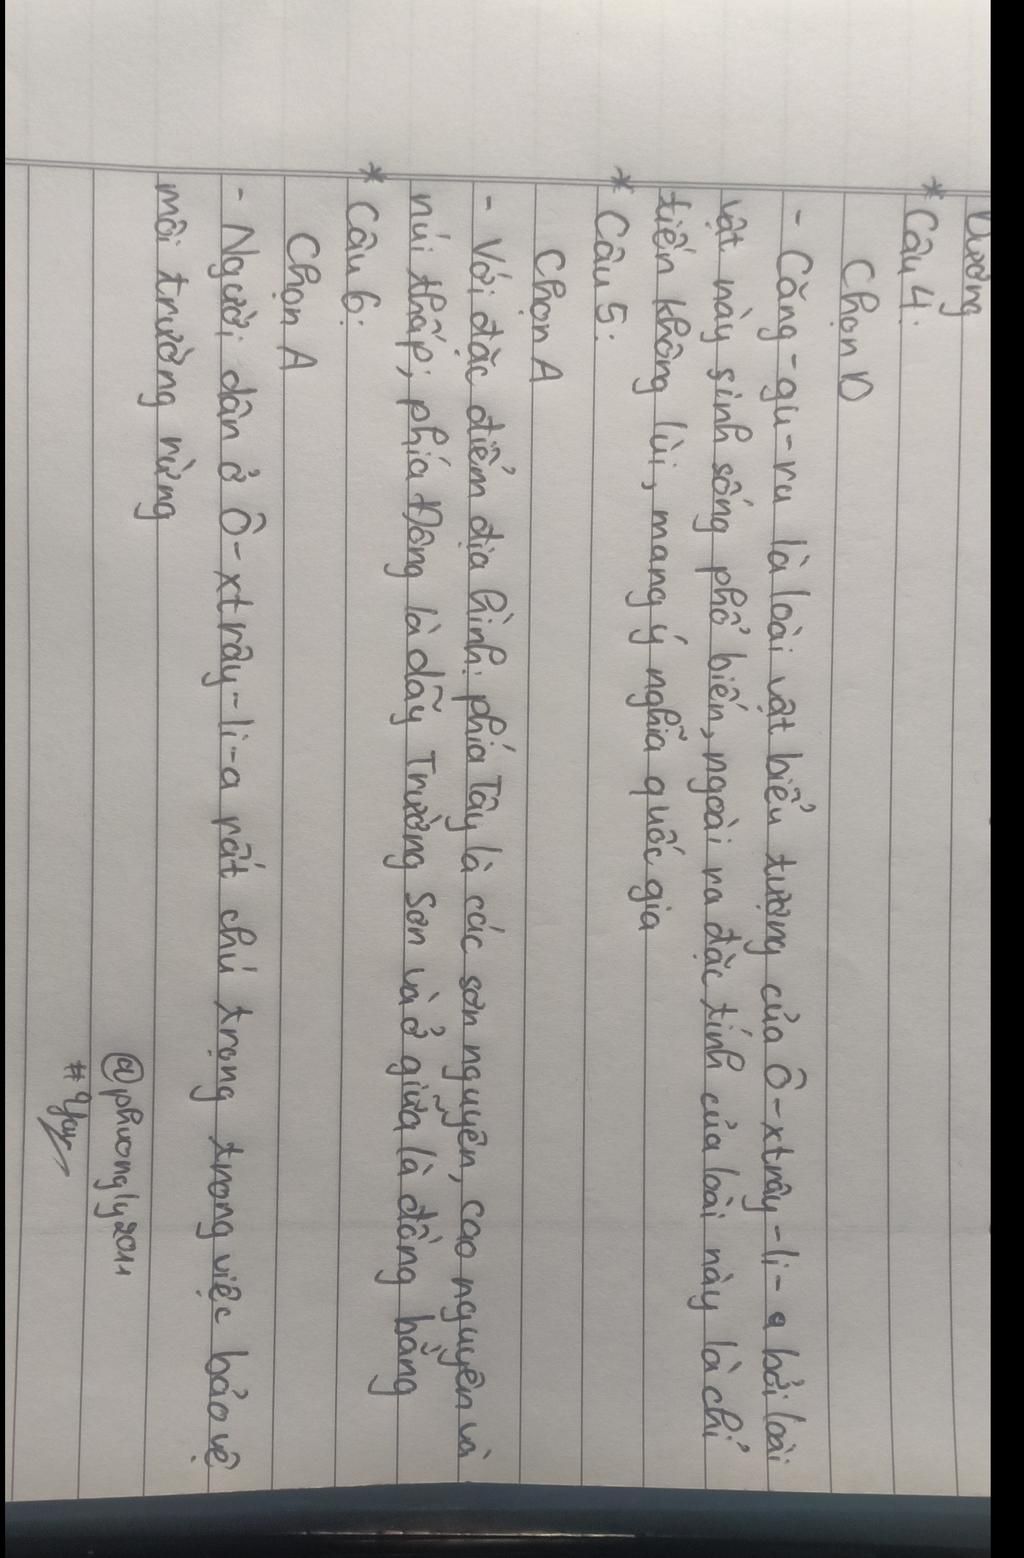 Dương
* Câu 4:
Chọn D
- Căng-gu-ru là loài vật biểu tượng của Ô-xtrây-li-a bởi loài
vật này sinh sống phổ biến, ngoài ra đặc tính của loài này là chỉ
tiến không lùi, mang ý nghĩa quốc gia
* Câu 5:
Chọn A
- Với đặc điểm địa hình: phía Tây là các sơn nguyên, cao nguyên và
núi thấp; phía Đông là dãy Trường Sơn và ở giữa là đồng bằng
* Câu 6:
Chọn A
- Người dân ở Ô-xtrây-li-a rất chú trọng trong việc bảo vệ
môi trường rừng
@phuongly2011